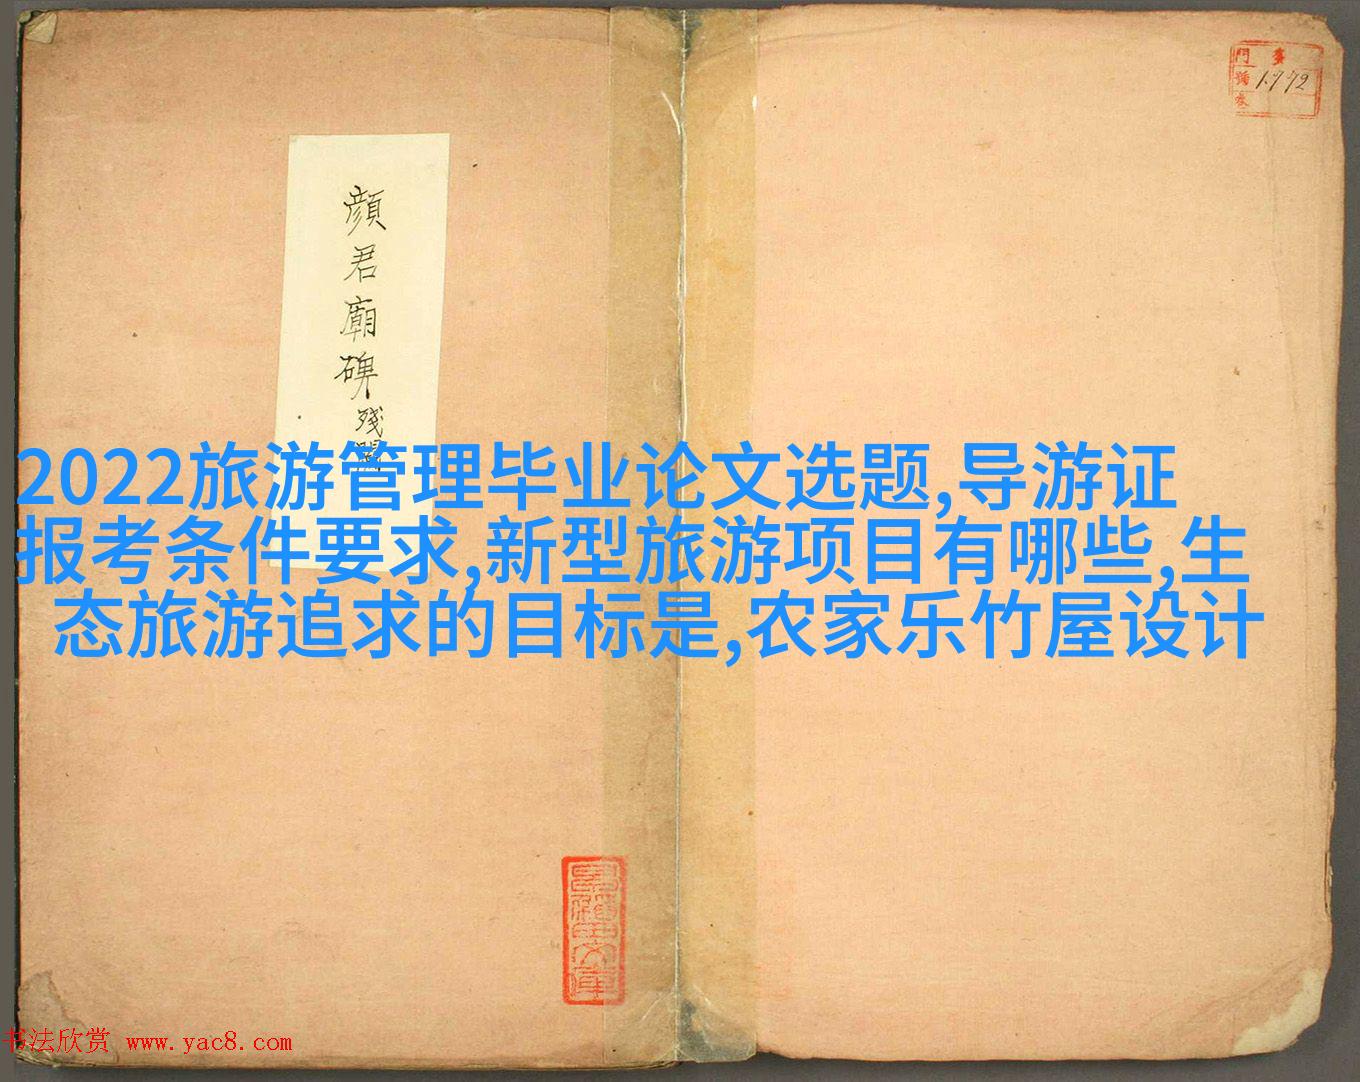 門 号
號 1772
巻
顔君廟碑残闕
2022旅游管理毕业论文选题,导游证
报考条件要求,新型旅游项目有哪些,生
态旅游追求的目标是,农家乐竹屋设计
书法欣赏 www.yac8.com